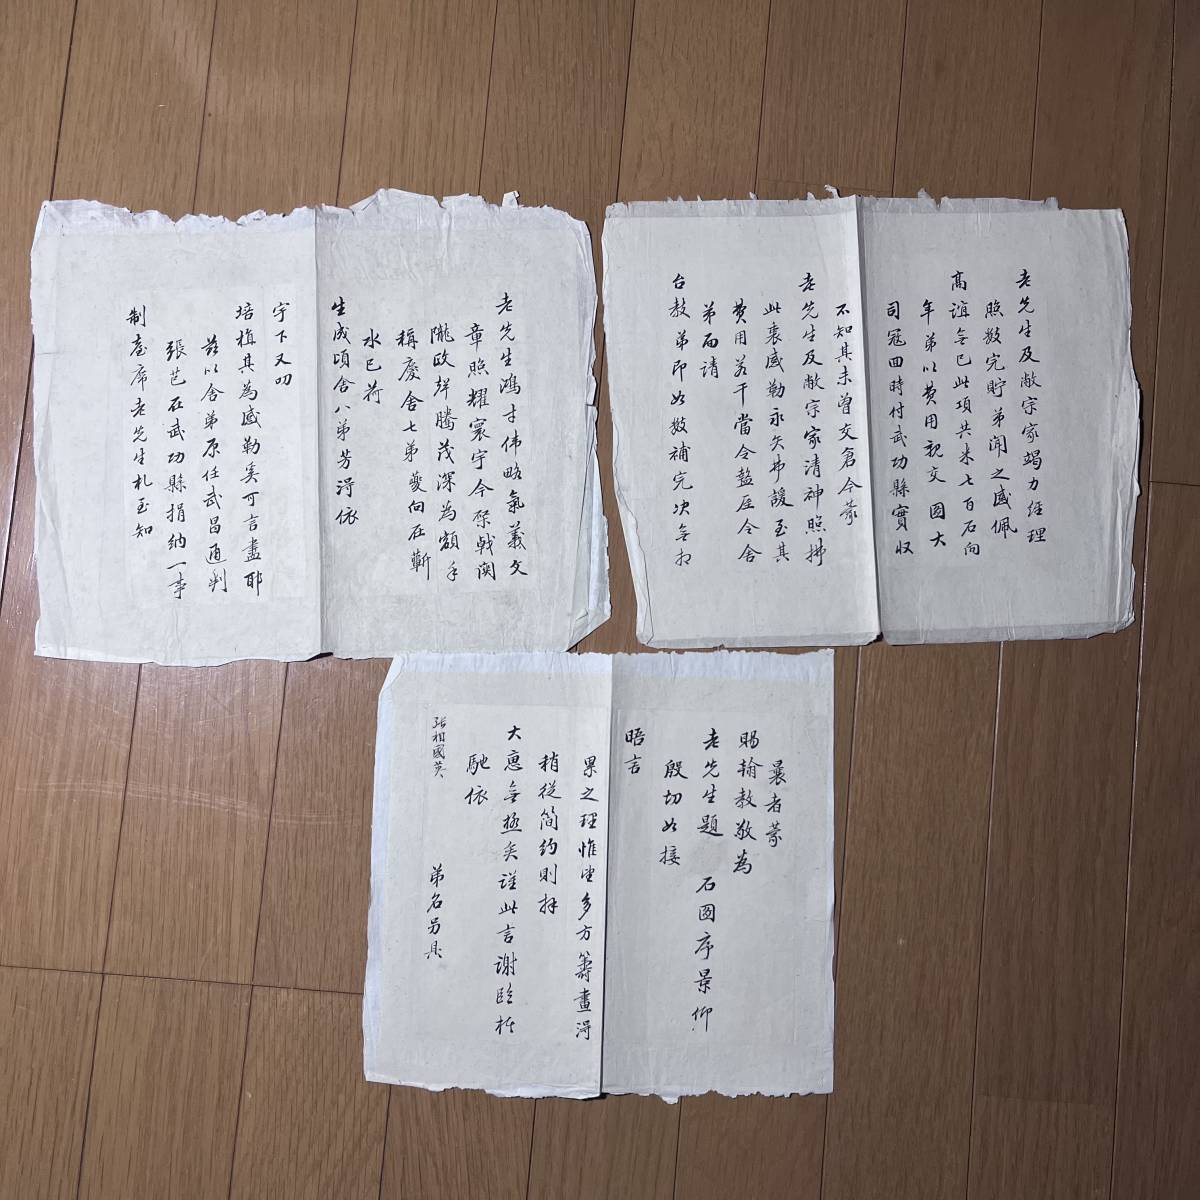 老先生鴻才偉略氣義文
章照耀寰宇今棨戟関
隴歐聲騰茂深為額手
稱慶舍七弟夔向在蘄
水已荷
生成頃舍八弟芳淂依
宇下又叨
培植其為感勒奚可言盡耶
茲以舍弟原任武昌通判
張芑在武功縣捐納一事
制臺席老先生札至知
老先生及敝宗家竭力經理
照数完貯弟闻之感佩
高誼無已此項共米七百石向
年弟以費用親交 图大
司冦四時付武功縣實収
不知其未曽交倉今蒙
老先生及敝宗家清神照拂
此衷感勒永矢弗諼至其
費用若干當令盩厔令舍
弟面請
台教弟即如数補完决無相
曩者蒙
賜翰教敬為
老先生題 石图序景仰
殷切如接
晤言
累之理惟望多方籌畫淂
稍從简约則拜
大惠無極矣謹此言谢臨楮
馳依
弟名另具
張相國英